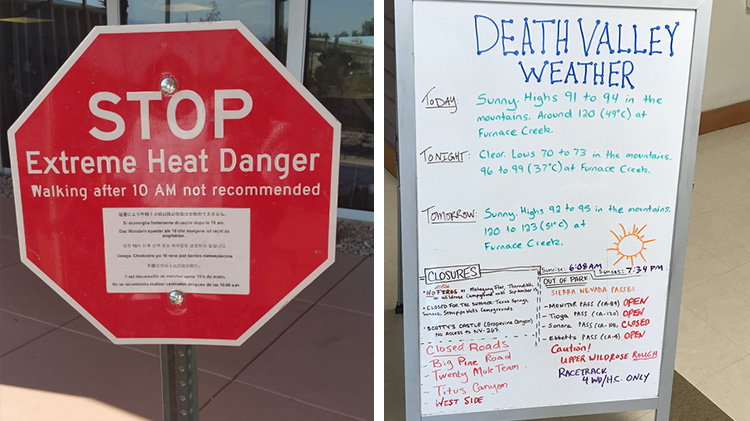 STOP
Extreme Heat Danger
Walking after 10 AM not recommended
Si sconsiglia fortemente di uscire dopo le 10 am.
Das Wandern spaeter als 10 Uhr morgens ist nicht zu
empfehlen.
DEATH VALLEY
WEATHER
TODAY Sunny. Highs 91 to 94 in the
mountains. Around 120 (49°C) at
Furnace Creek.
TONIGHT Clear. Lows 70 to 73 in the mountains.
96 to 99 (37°C) at Furnace Creek.
TOMORROW Sunny. Highs 92 to 95 in the mountains.
120 to 123 (51°C) at
Furnace Creek.
Sunrise: 6:08 AM Sunset: 7:34 PM
CLOSURES
NO FIRES at Mahogany Flat, Thorndike,
or Wildrose Campground until September
CLOSED FOR THE SUMMER: Texas Springs,
Sunset, Stovepipe Wells Campgrounds.
SCOTTY'S CASTLE (Grapevine Canyon)
No access to NV-267.
Closed Roads
- Big Pine Road
- Twenty Mule Team
- Titus Canyon
WEST SIDE
OUT OF PARK
SIERRA NEVADA PASSES
- MONITOR PASS (CA-89) OPEN
- Tioga PASS (CA-120) OPEN
- Sonora PASS (CA-108) CLOSED
- Ebbetts PASS (CA-4) OPEN
Caution!
UPPER WILDROSE ROUGH
RACETRACK
4WD/H.C. ONLY